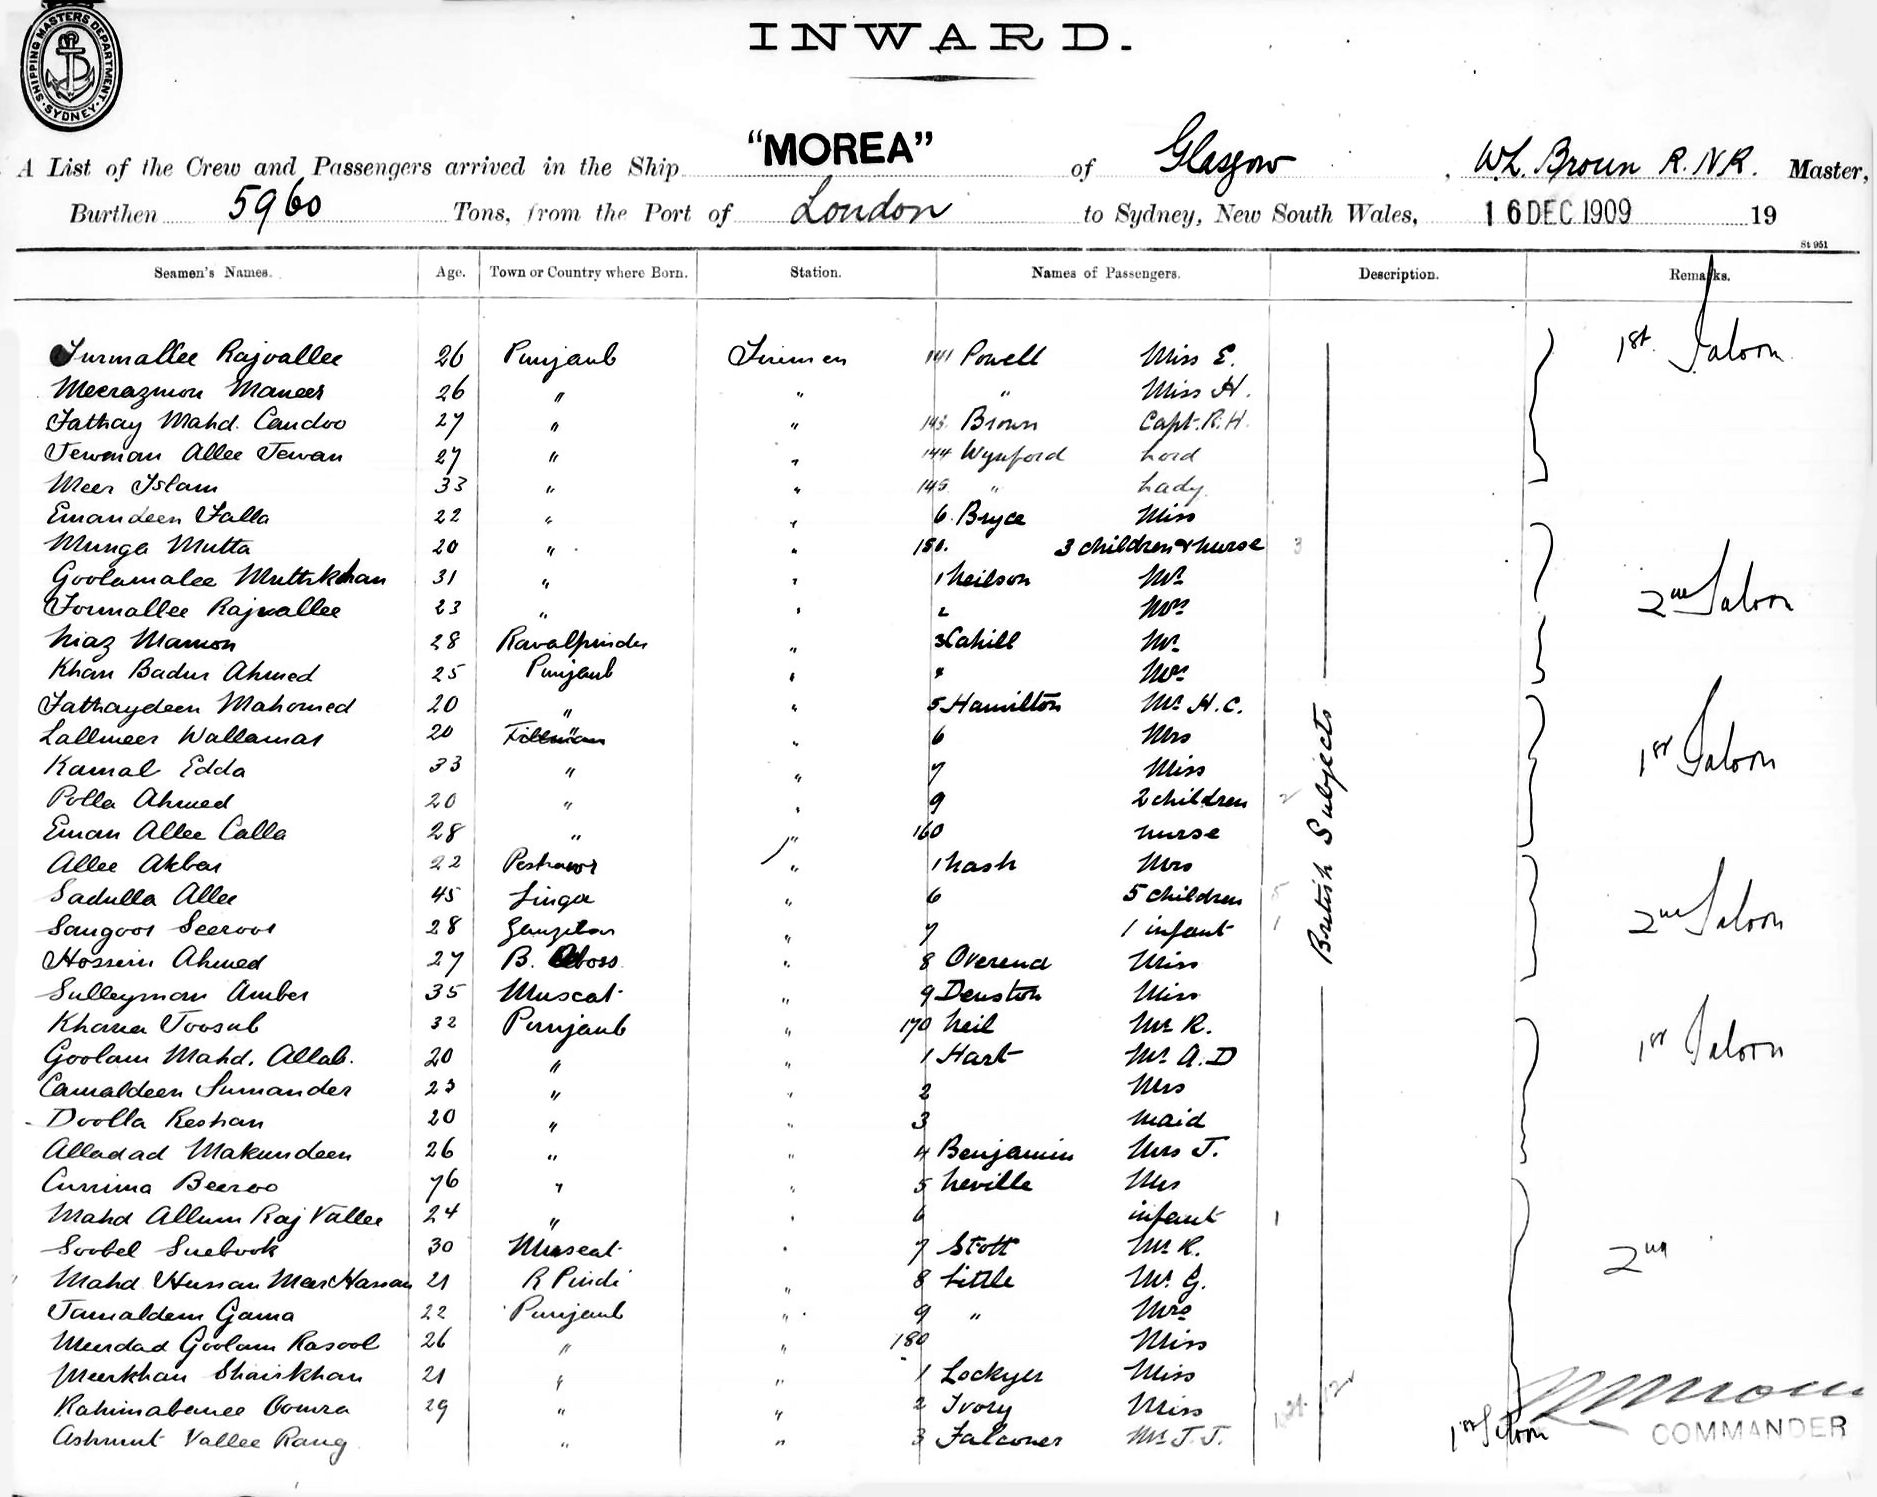 SHIPPING MASTERS DEPARTMENT. SYDNEY.
INWARD.
A List of the Crew and Passengers arrived in the Ship "MOREA" of Glasgow, W.L. Broun R.N.R. Master,
Burthen 5960 Tons, from the Port of London to Sydney, New South Wales, 16 DEC 1909 19
St 951
Seamen's Names. Age. Town or Country where Born. Station. Names of Passengers. Description. Remarks.
Furmallee Rajvallee 26 Punjaub Firemen 141 Powell Miss E. 1st. Saloon
Meerazmon Maneer 26 " " " Miss H.
Fathay Mahd. Candoo 27 " " 143. Brown Capt. R.H.
Jewman Allee Jewan 27 " " 144 Wynford Lord
Meer Islam 33 " " 145 " Lady
Emandeen Falla 22 " " 6. Bryce Miss
Munga Mutta 20 " " 150. 3 children & nurse 3
Goolamalee Muttikhan 31 " " 1 Neilson Mr
Formallee Rajvallee 23 " " 2 Mrs 2nd Saloon
Niaz Mamon 28 Ravalpinder " 3 Cahill Mr
Khan Badur Ahmed 25 Punjaub " " Mrs
Fathaydeen Mahomed 20 " " 5 Hamilton Mr H.C.
Lallmeer Wallamar 20 " 6 Mrs
Kamal Edda 33 " " 7 Miss 1st Saloon
Polla Ahmed 20 " " 9 2 children 2
Eman Allee Calla 28 " " 160 nurse
British Subjects
Allee Akbar 22 Peshawr " 1 Nash Mrs
Sadulla Allee 45 Linga " 6 5 children 5
Sangoor Seeroor 28 " 7 1 infant 1 2nd Saloon
Hossein Ahmed 27 B. " 8 Overend Miss
Sulleyman Amber 35 Muscat " 9 Denston Miss
Khana Toosub 32 Punjaub " 170 Neil Mr R.
Goolam Mahd. Allab. 20 " " 1 Hart Mr A.D 1st Saloon
Camaldeen Sumander 23 " " 2 Mrs
Doolla Reshan 20 " " 3 maid
Alladad Makundeen 26 " " 4 Benjamin Mrs J.
Currima Beeroo 76 " " 5 Neville Mrs
Mahd Allum Raj Vallee 24 " " 6 infant 1
Soobel Suebook 30 Muscat " 7 Stott Mr R. 2nd
Mahd Hussan Meer Hassan 21 R Pindi " 8 Little Mr G.
Jamaldem Gama 22 Punjaub " 9 " Mrs
Meerdad Goolam Rasool 26 " " 180 Miss
Meerkhan Shairkhan 21 " " 1 Lockyer Miss
Rahimabanee Oomra 29 " " 2 Ivory Miss
Ashmut Vallee Rang " " 3 Falconer Mr J.J. 1st Saloon
COMMANDER